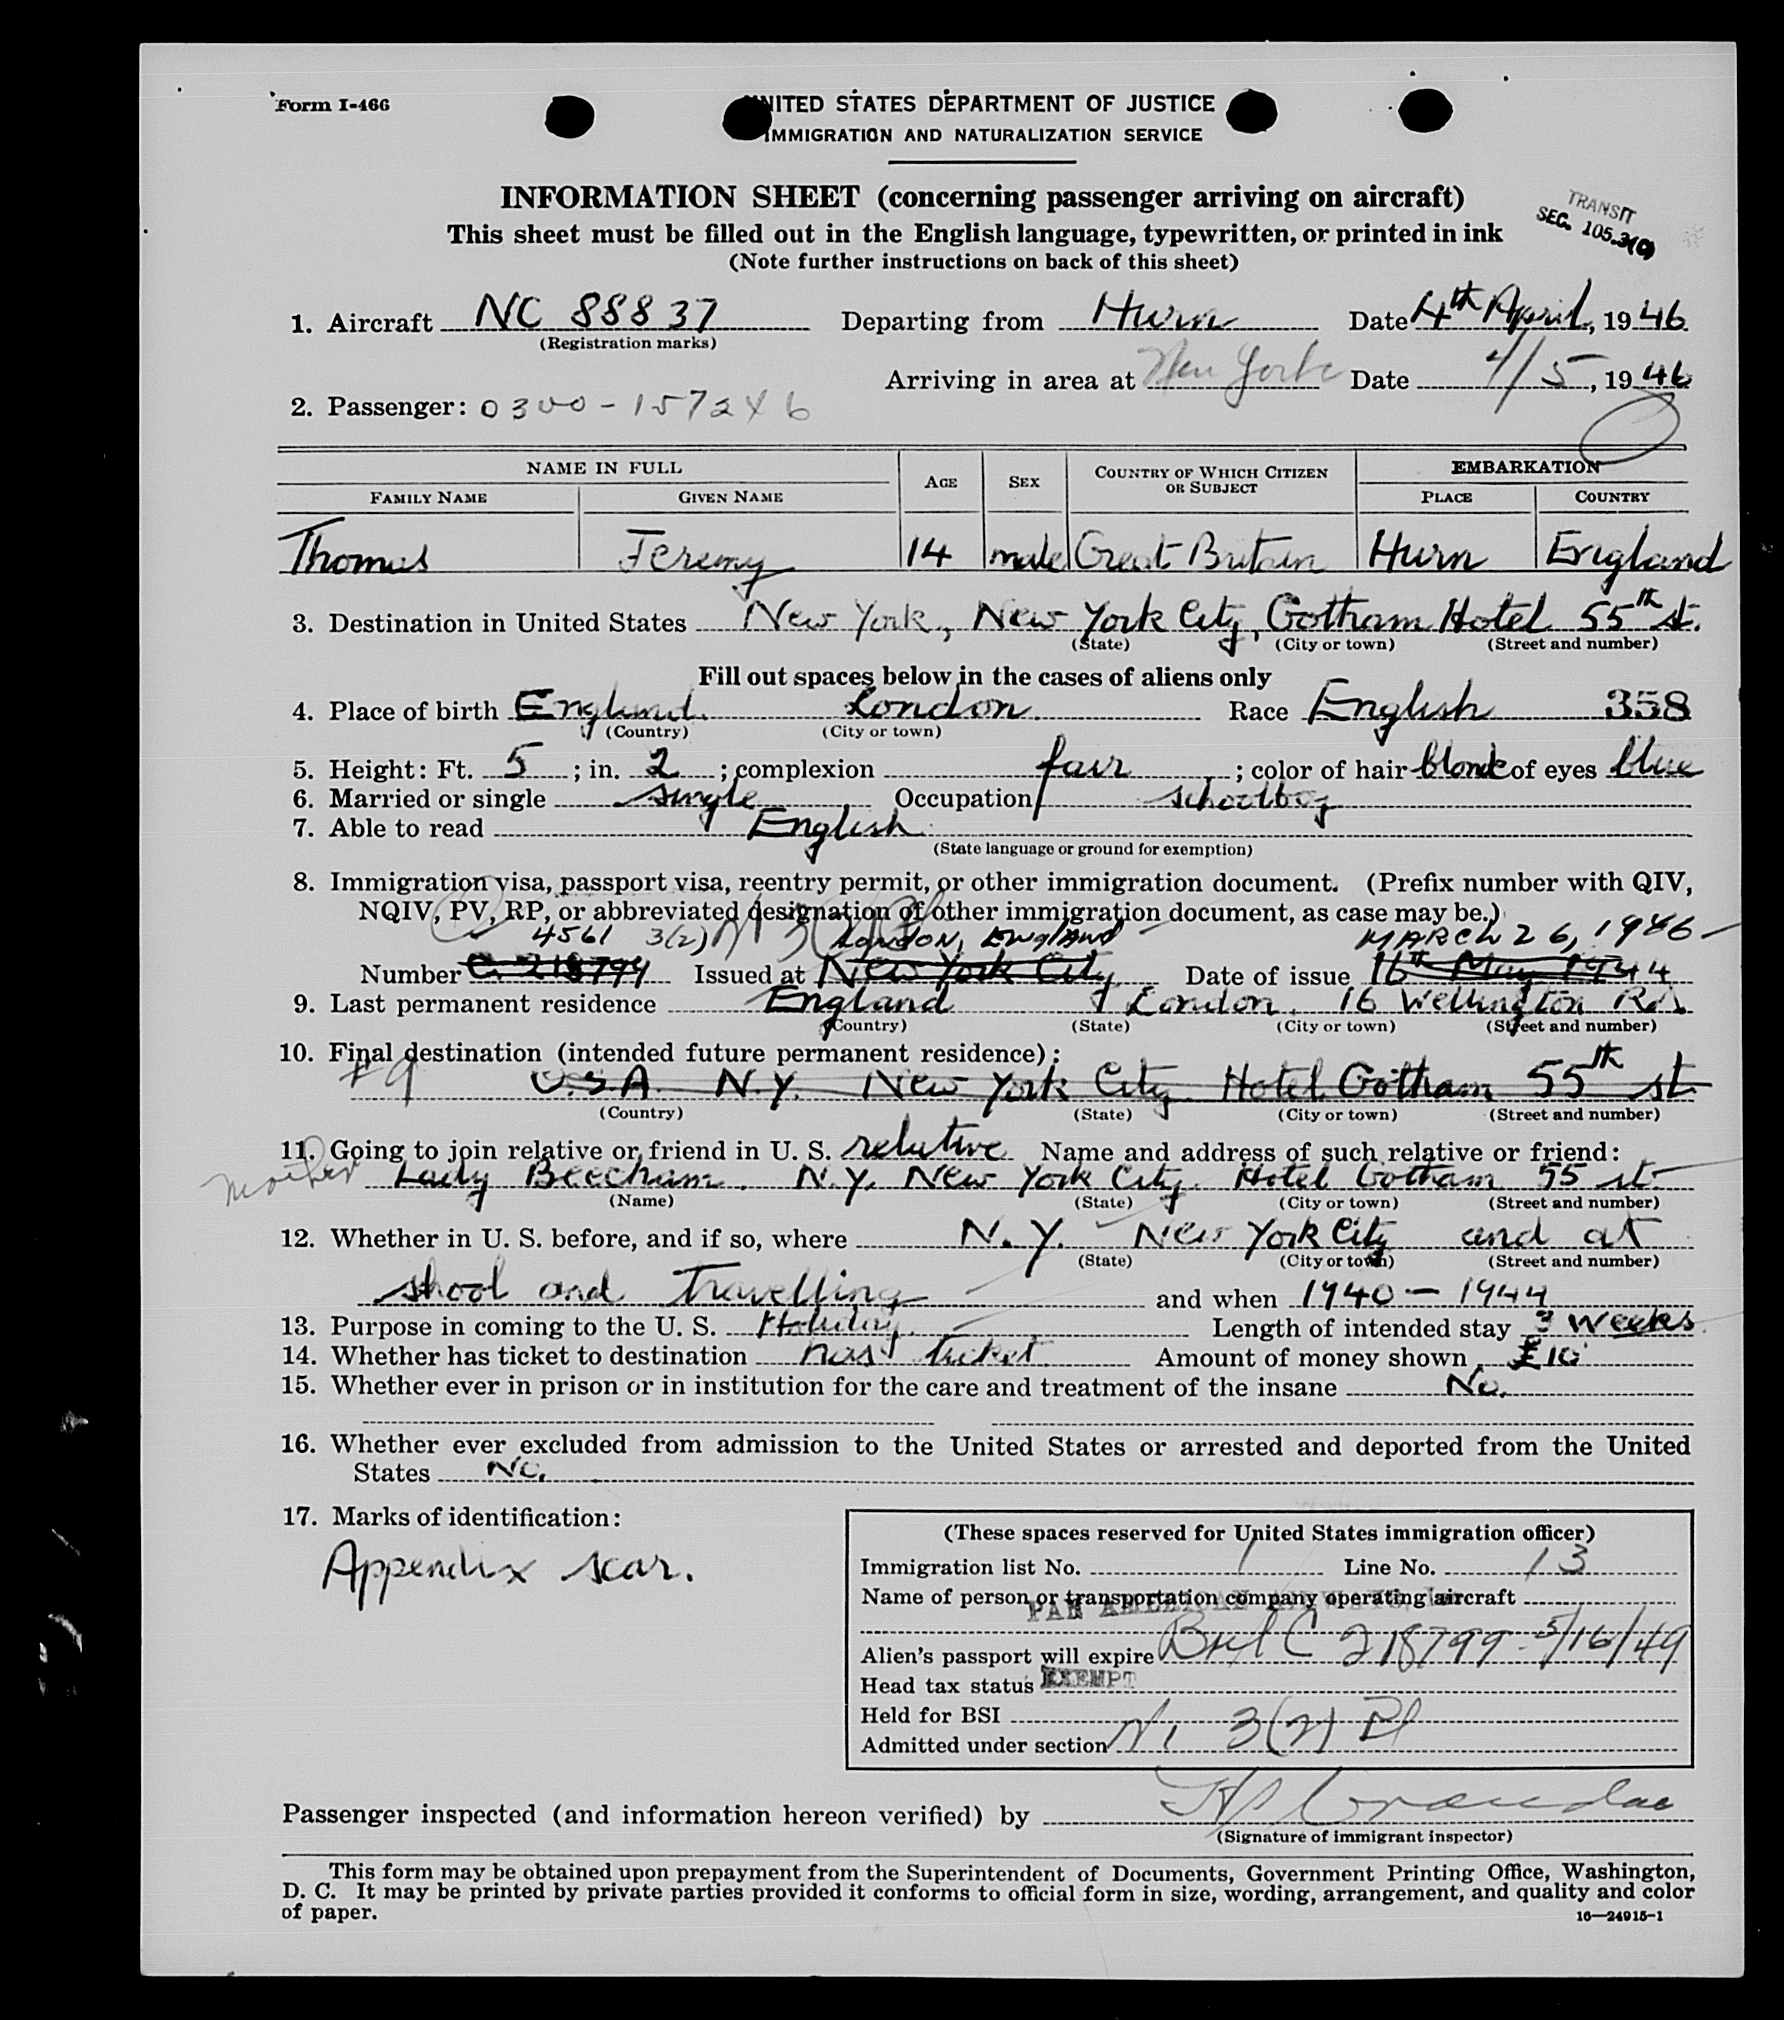 Form I-466
UNITED STATES DEPARTMENT OF JUSTICE
IMMIGRATION AND NATURALIZATION SERVICE
INFORMATION SHEET (concerning passenger arriving on aircraft)
This sheet must be filled out in the English language, typewritten, or printed in ink
(Note further instructions on back of this sheet)
TRANSIT
SEC. 105.3(C)
1. Aircraft NC 88837 Departing from Hurn Date 4th April, 1946
(Registration marks)
Arriving in area at New York Date 4/5, 1946
2. Passenger: 0300-157246
NAME IN FULL AGE SEX COUNTRY OF WHICH CITIZEN OR SUBJECT EMBARKATION
FAMILY NAME GIVEN NAME PLACE COUNTRY
Thomas Jeremy 14 male Great Britain Hurn England
3. Destination in United States New York, New York City, Gotham Hotel 55th st.
(State) (City or town) (Street and number)
Fill out spaces below in the cases of aliens only
4. Place of birth England. London. Race English 358
(Country) (City or town)
5. Height: Ft. 5; in. 2; complexion fair; color of hair blonde of eyes blue
6. Married or single single Occupation schoolboy
7. Able to read English
(State language or ground for exemption)
8. Immigration visa, passport visa, reentry permit, or other immigration document. (Prefix number with QIV,
NQIV, PV, RP, or abbreviated designation of other immigration document, as case may be.)
4561 3(2) London, England March 26, 1946
Number C. 218799 Issued at New York City Date of issue 16th May 1944
9. Last permanent residence England London. 16 Wellington Rd.
(Country) (State) (City or town) (Street and number)
10. Final destination (intended future permanent residence):
#9 U.S.A. N.Y. New York City Hotel Gotham 55th st.
(Country) (State) (City or town) (Street and number)
11. Going to join relative or friend in U. S. relative Name and address of such relative or friend:
mother Lady Beecham. N.Y. New York City. Hotel Gotham 55 st.
(Name) (State) (City or town) (Street and number)
12. Whether in U. S. before, and if so, where N.Y. New York City and at
(State) (City or town) (Street and number)
shool and Travelling and when 1940 - 1944
13. Purpose in coming to the U. S. Holiday. Length of intended stay 3 weeks.
14. Whether has ticket to destination has ticket. Amount of money shown £10
15. Whether ever in prison or in institution for the care and treatment of the insane No.
16. Whether ever excluded from admission to the United States or arrested and deported from the United
States No.
17. Marks of identification:
Appendix scar.
(These spaces reserved for United States immigration officer)
Immigration list No. 1 Line No. 13
Name of person or transportation company operating aircraft
PAN AMERICAN AIRWAYS, Inc
Alien's passport will expire Brit C 218799 - 5/16/49
Head tax status EXEMPT
Held for BSI
Admitted under section 3(2)
Passenger inspected (and information hereon verified) by
(Signature of immigrant inspector)
This form may be obtained upon prepayment from the Superintendent of Documents, Government Printing Office, Washington,
D. C. It may be printed by private parties provided it conforms to official form in size, wording, arrangement, and quality and color
of paper.
16—24915-1